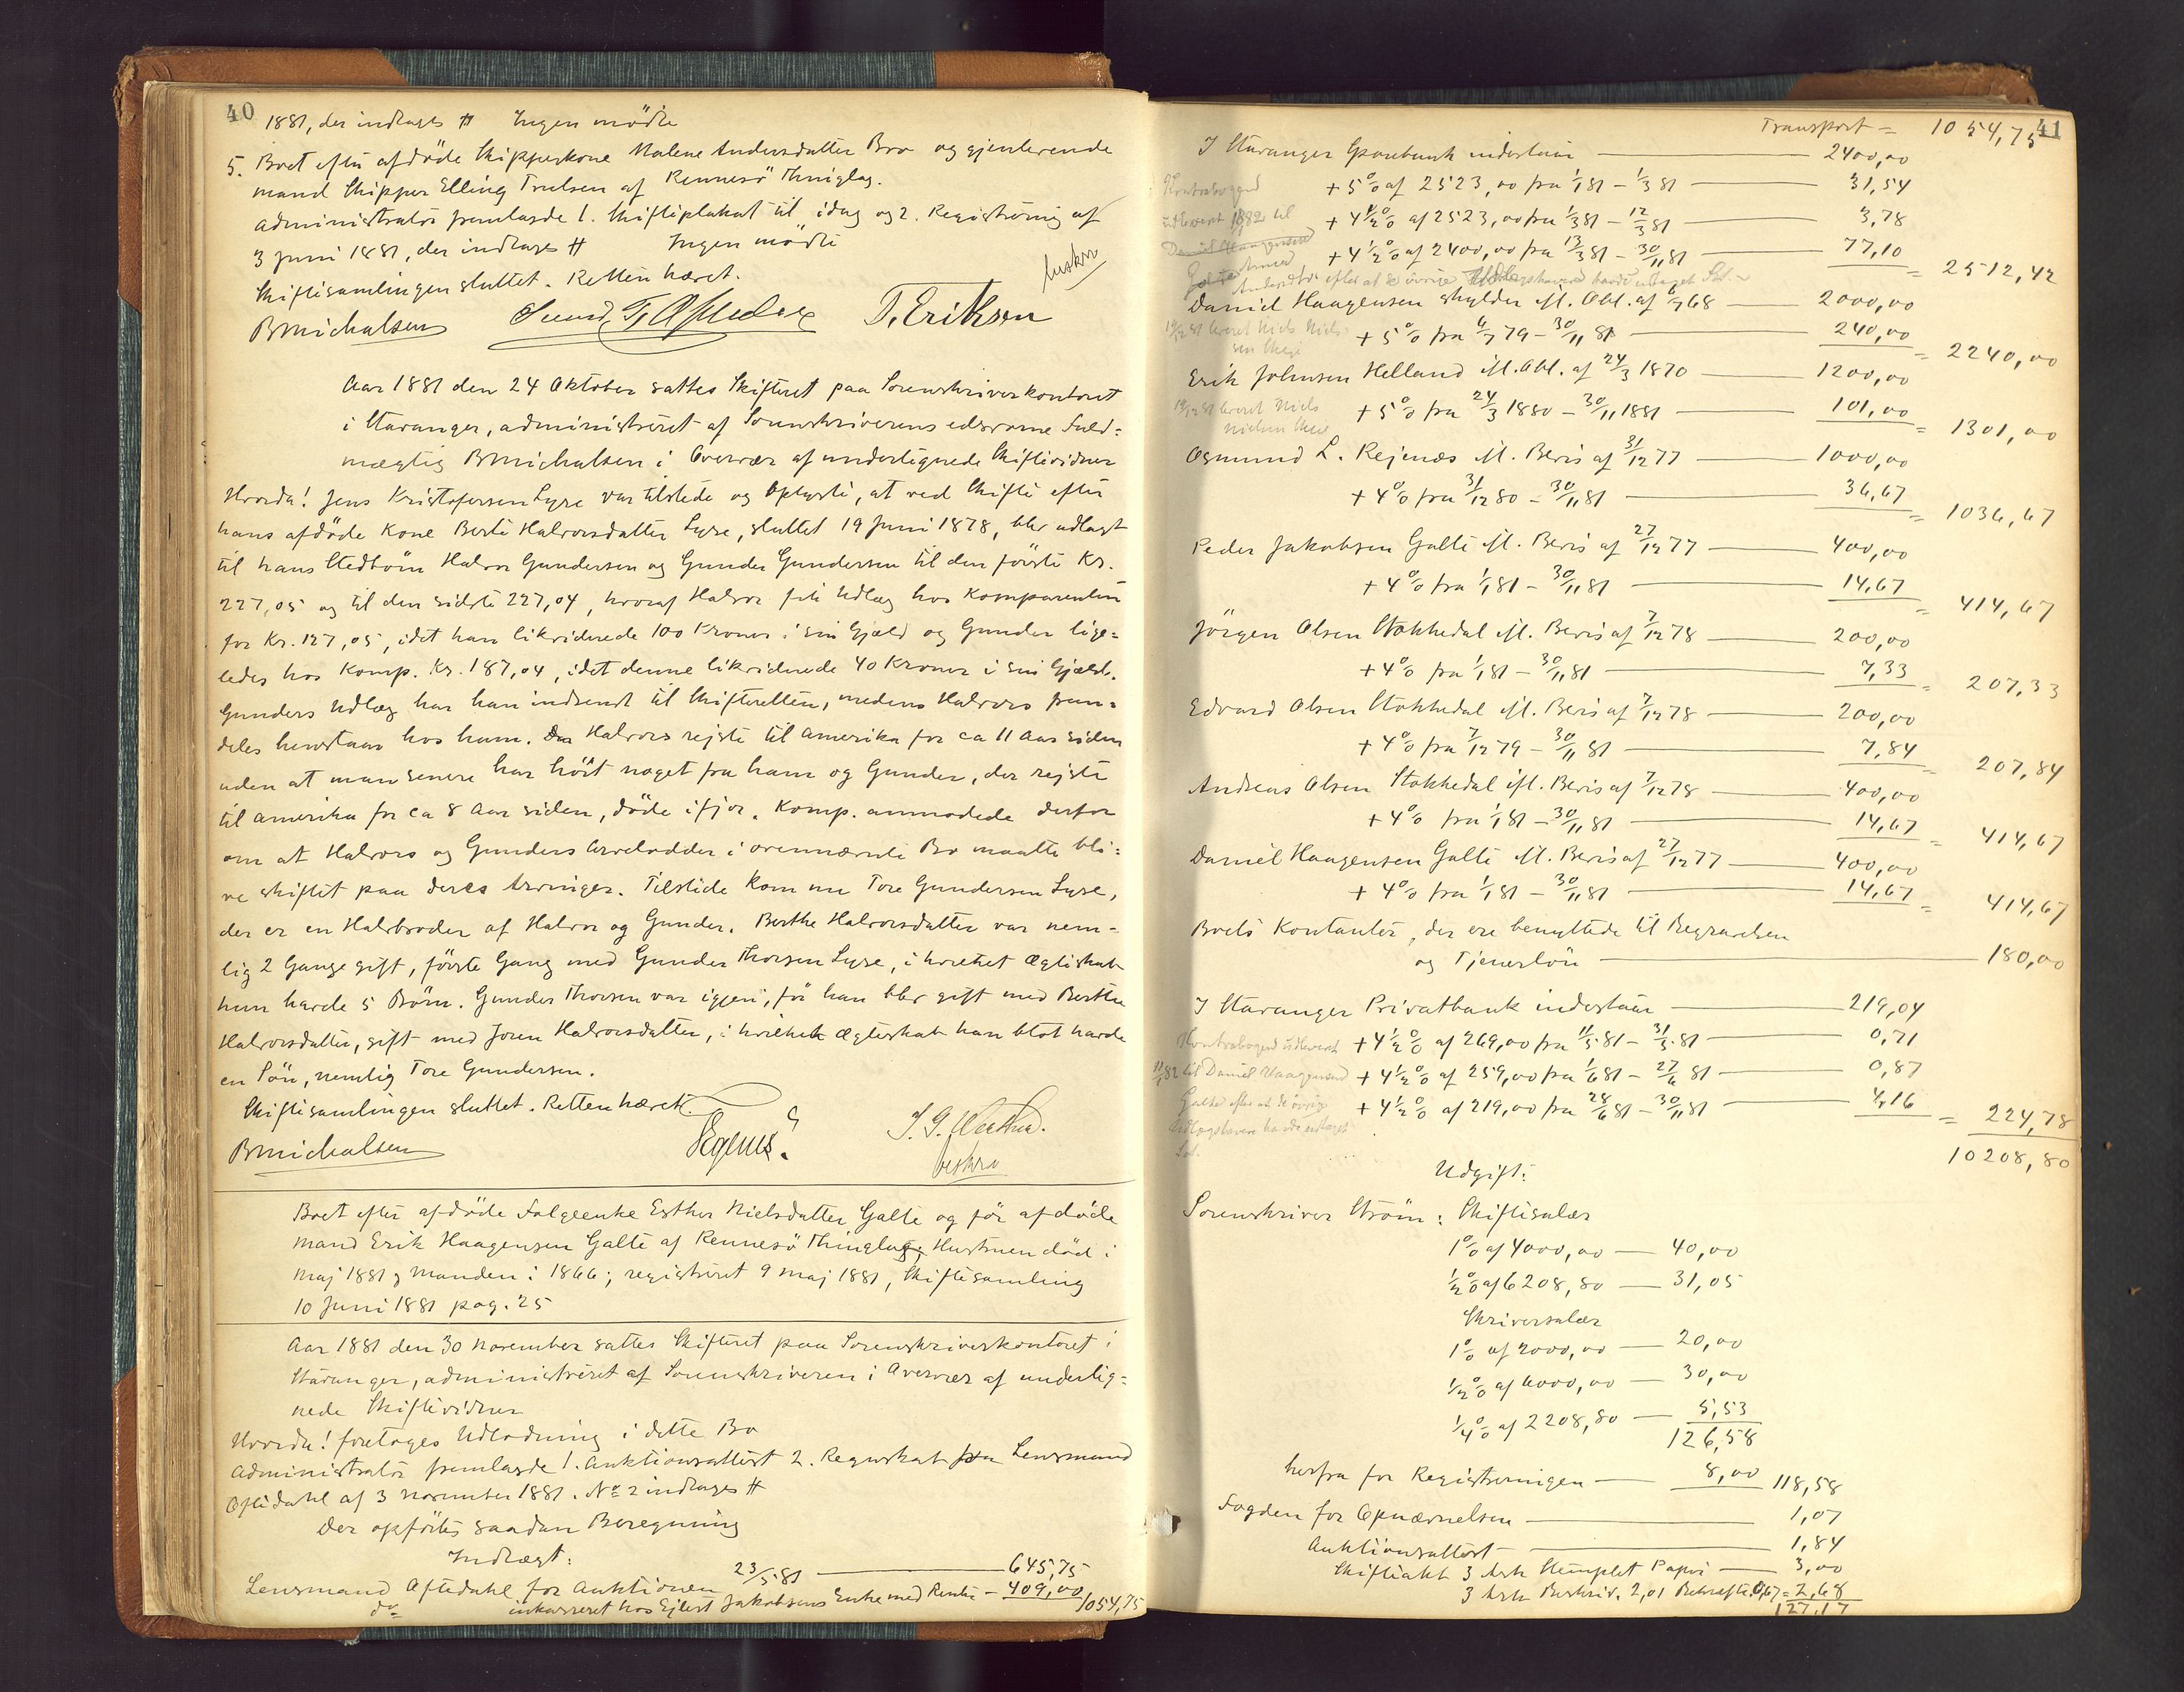 40
1881, der indtages # Ingen mødte
5. Boet efter afdøde Skipperkone Malene Andersdatter Bra og gjenlevende
mand Skipper Elling Trulsen af Rennesö Thinglag.
Administrator fremlagde 1. Skifteplakat til idag og 2. Registrering af
3 Juni 1881, der indtages # Ingen mødte
Skiftesamlingen sluttet. Retten hævet.
BMichalsen T. Eriksen
Aar 1881 den 24 Oktober sattes Skifteret paa Sorenskriverkontoret
i Stavanger, administreret af Sorenskriverens edsvorne Fuld=
mægtig BMichalsen i Overvær af undertegnede Skiftevidner
Hvorda! Jens Kristofersen Lyse var tilstede og oplyste, at ved Skifte efter
hans afdøde Kone Berte Halvorsdatter Lyse, sluttet 19 Juni 1878, blev udlagt
til hans Stedbörn Halvor Gundersen og Gunder Gundersen til den förste Kr.
227,05 og til den sidste 227,04, hvoraf Halvor fik Udlæg hos Komparenten
for Kr. 127,05, idet han likviderede 100 Kroner i sin Gjæld og Gunder lige=
ledes hos Komp. Kr. 187,04, idet denne likviderede 40 Kroner i sin Gjæld.
Gunders Udlæg har han indsendt til Skifteretten, medens Halvors frem=
deles henstaar hos ham. Halvors rejste til Amerika for ca 11 Aar siden
uden at man senere har hört noget fra ham og Gunder, der rejste
til Amerika for ca 8 Aar siden, döde ifjor. Komp. anmodede derfor
om at Halvors og Gunders Arvelodder i ovennævnte Bo maatte bli=
ve skiftet paa deres Arvinger. Tilstede kom nu Tore Gundersen Lyse,
der er en Halvbroder af Halvor og Gunder. Berthe Halvorsdatter var nem=
lig 2 Gange gift, förste Gang med Gunder Thorsen Lyse, i hvilket Ægteskab
hun havde 5 Börn. Gunder Thorsen var igjen, för han blev gift med Berthe
Halvorsdatter, gift med Joren Halvorsdatter, i hvilket Ægteskab han blot havde
en Sön, nemlig Tore Gundersen.
Skiftesamlingen sluttet. Retten hævet.
BMichalsen
Boet efter afdöde Folgeenke Esther Nielsdatter Galte og för afdöde
Mand Erik Haagensen Galte af Rennesö Thinglag, Hustruen död i
Maj 1881 og Manden i 1866; registreret 9 Maj 1881, Skiftesamling
10 Juni 1881 pag. 25
Aar 1881 den 30 November sattes Skifteret paa Sorenskriverkontoret i
Stavanger, administreret af Sorenskriveren i Overvær af undertig=
nede Skiftevidner
Hvorda! foretoges Udlodning i dette Bo
Administrator fremlagde 1. Auktionsattest 2. Regnskab fra Lensmand
Aftedahl af 3 November 1881. No 2 indtages #
Der opförtes saadan Beregning
Indtægt:
Lensmand Aftedahl for Auktionen 23/5 81 — 645,75
do inkasseret hos Ejlert Jakobsens Enke med Rente — 409,00 1054,75
41
Transport = 1054,75
I Stavanger Sparebank indestaar — 2400,00
Kontrabogen + 5% af 2523,00 fra 1/1 81 - 1/3 81 — 31,54
udleveret 1882 til + 4 1/2 % af 2523,00 fra 1/3 81 - 12/3 81 — 3,78
Daniel Haagensen + 4 1/2 % af 2400,00 fra 13/3 81 - 30/11 81 — 77,10 = 2512,42
Daniel Haagensen skylder ifl. Obl. af 6/7 68 — 2000,00
+ 5% fra 6/7 79 - 30/11 81 — 240,00 = 2240,00
Erik Johnsen Helland ifl. Obl. af 24/3 1870 — 1200,00
+ 5% fra 24/3 1880 - 30/11 1881 — 101,00 = 1301,00
Osmund L. Rejenæs ifl. Bevis af 31/12 77 — 1000,00
+ 4% fra 31/12 80 - 30/11 81 — 36,67 = 1036,67
Peder Jakobsen Galte ifl. Bevis af 27/12 77 — 400,00
+ 4% fra 1/1 81 - 30/11 81 — 14,67 = 414,67
Jörgen Olsen Stokkedal ifl. Bevis af 7/12 78 — 200,00
+ 4% fra 1/1 81 - 30/11 81 — 7,33 = 207,33
Edvard Olsen Stokkedal ifl. Bevis af 7/12 78 — 200,00
+ 4% fra 7/12 79 - 30/11 81 — 7,84 = 207,84
Andreas Olsen Stokkedal ifl. Bevis af 7/12 78 — 400,00
+ 4% fra 1/1 81 - 30/11 81 — 14,67 = 414,67
Daniel Haagensen Galte ifl. Bevis af 27/12 77 — 400,00
+ 4% fra 1/1 81 - 30/11 81 — 14,67 = 414,67
Boets Kontanter, der ere benyttede til Begravelsen
og Tjenerlön — 180,00
I Stavanger Privatbank indestaar — 219,04
Kontrabogen udleveret + 4 1/2 % af 269,00 fra 11/5 81 - 31/5 81 — 0,71
til Daniel Haagensen + 4 1/2 % af 259,00 fra 1/6 81 - 27/6 81 — 0,87
Galte efter at de övrige + 4 1/2 % af 219,00 fra 28/6 81 - 30/11 81 — 4,16 = 224,78
Udlægshavere havde udtaget
10208,80
Udgift:
Sorenskriver Ström: Skiftesalær
1% af 4000,00 — 40,00
1/2 % af 6208,80 — 31,05
Skriversalær
1% af 2000,00 — 20,00
1/2 % af 6000,00 — 30,00
1/4 % af 2208,80 — 5,53
126,58
herfra for Registreringen — 8,00 118,58
Fogden for Opnævnelsen — 1,07
Auktionsattest — 1,84
Skifteakt 3 Ark Stemplet Papir — 3,00
3 Ark Beskriv. 2,01 Bekræfte 0,67 = 2,68
127,17